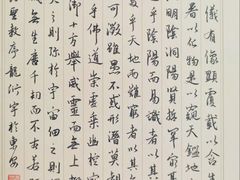 儀有像顯覆載以含生
暑以化物是以窺天鑑地
明陰洞陽賢哲罕窮其
乎陰陽而易識者以其
乎天地而難窮者以其
可徵雖愚不惑形潛莫
乎佛道崇虛乘幽控寂
御十方舉威靈而無上
之則彌於宇宙細之則
無生歷千劫而不古若
聖教序